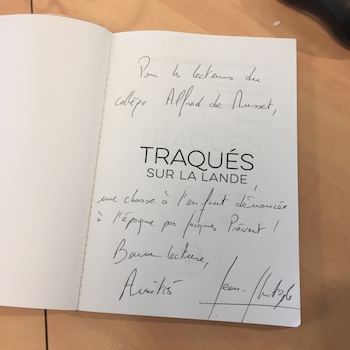 Pour les lecteurs du
collège Alfred de Musset,
TRAQUÉS
SUR LA LANDE,
une chasse à l'enfant dénoncée
à l'époque par Jacques Prévert !
Bonne lecture,
Amitiés
Jean-Christophe